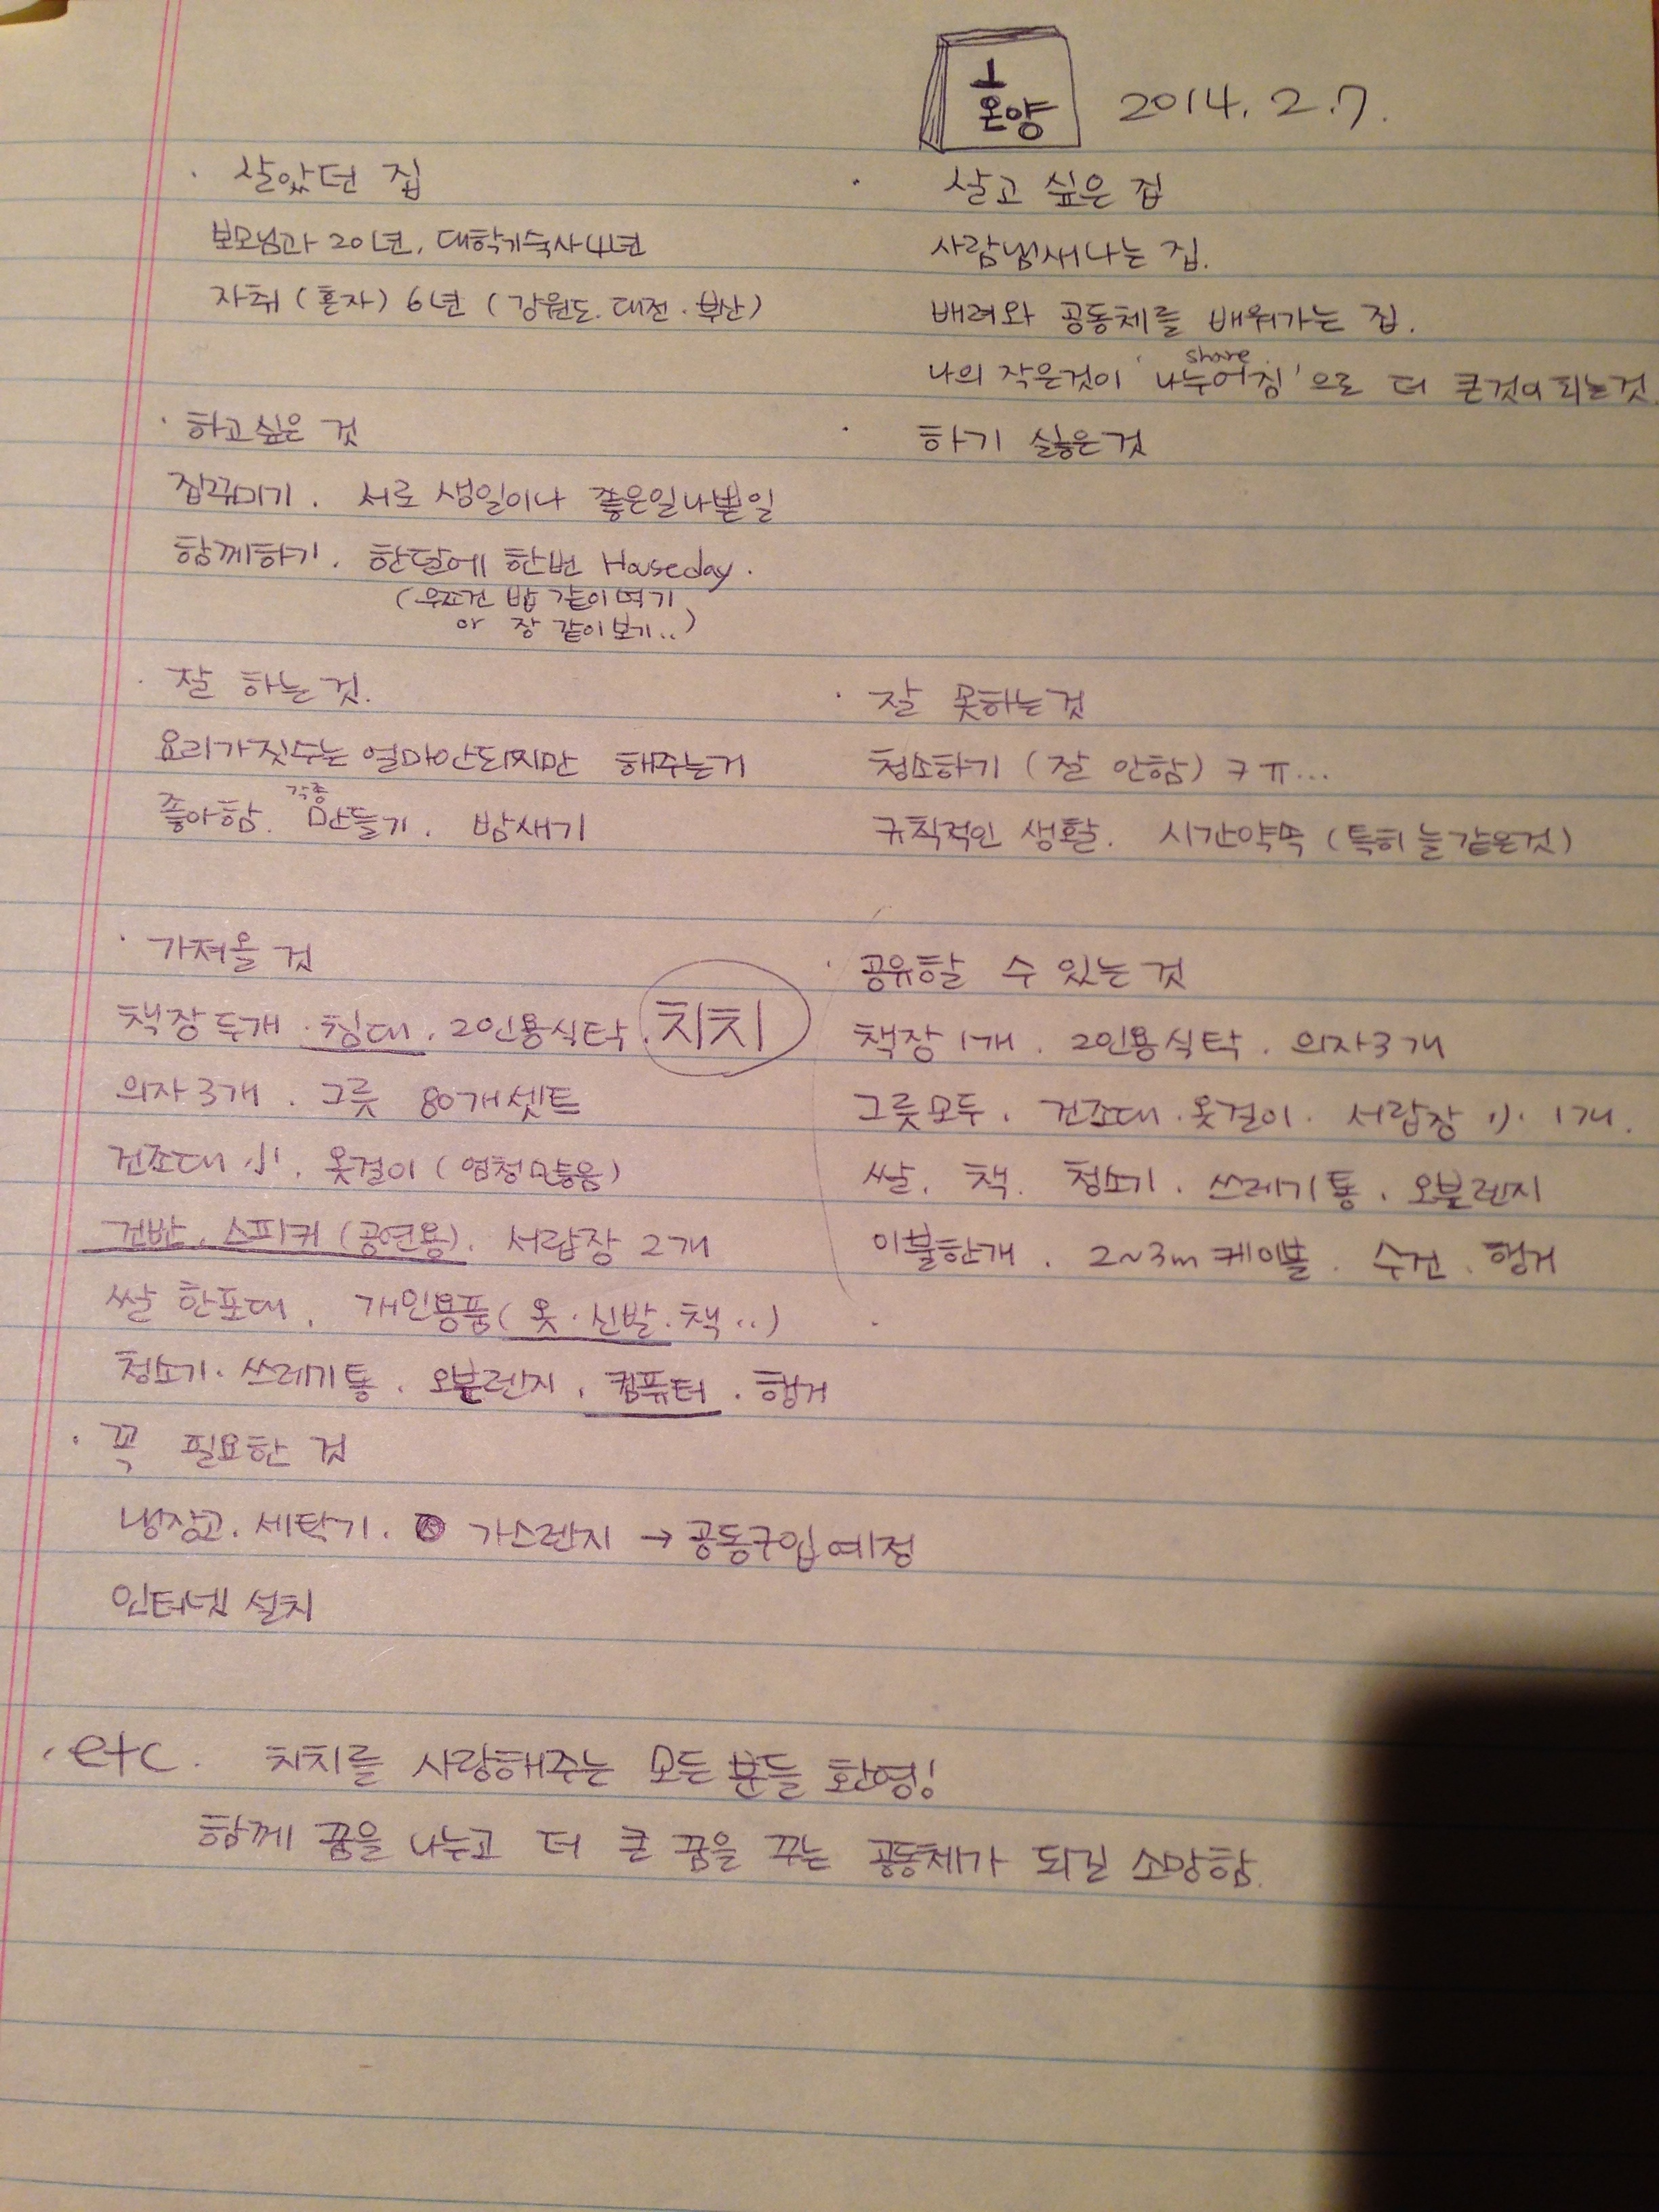 온양 2014. 2. 7.
· 살았던 집
부모님과 20년, 대학기숙사 4년
자취 (혼자) 6년 (강원도. 대전 · 부산)
· 살고 싶은 집
사람냄새나는 집.
배려와 공동체를 배워가는 집.
share
나의 작은것이 '나누어짐'으로 더 큰것이 되는것
· 하고싶은 것
집꾸미기. 서로 생일이나 좋은일나쁜일
함께하기. 한달에 한번 Houseday.
(무조건 밥 같이먹기
or 장 같이보기..)
· 하기 싫은것
· 잘 하는것.
요리가짓수는 얼마안되지만 해주는거
각종
좋아함. 만들기. 밤새기
· 잘 못하는것
청소하기 (잘 안함) ㅋㅠ...
규칙적인 생활. 시간약속 (특히 늘같은것)
· 가져올 것
책장 두개 · 침대. 2인용식탁. 치치
의자3개. 그릇 80개셋트
건조대 小. 옷걸이 (엄청많음)
건반. 스피커 (공연용). 서랍장 2개
쌀 한포대, 개인용품( 옷 · 신발 · 책 ..)
청소기 · 쓰레기통. 오븐렌지. 컴퓨터. 행거
· 공유할 수 있는것
책장 1개. 2인용식탁. 의자3개
그릇모두. 건조대 · 옷걸이. 서랍장 小 1개.
쌀. 책. 청소기. 쓰레기통. 오븐렌지
이불한개. 2~3m 케이블. 수건. 행거
· 꼭 필요한 것
냉장고. 세탁기. 가스렌지 → 공동구입예정
인터넷 설치
· etc. 치치를 사랑해주는 모든 분들 환영!
함께 꿈을 나누고 더 큰 꿈을 꾸는 공동체가 되길 소망함.